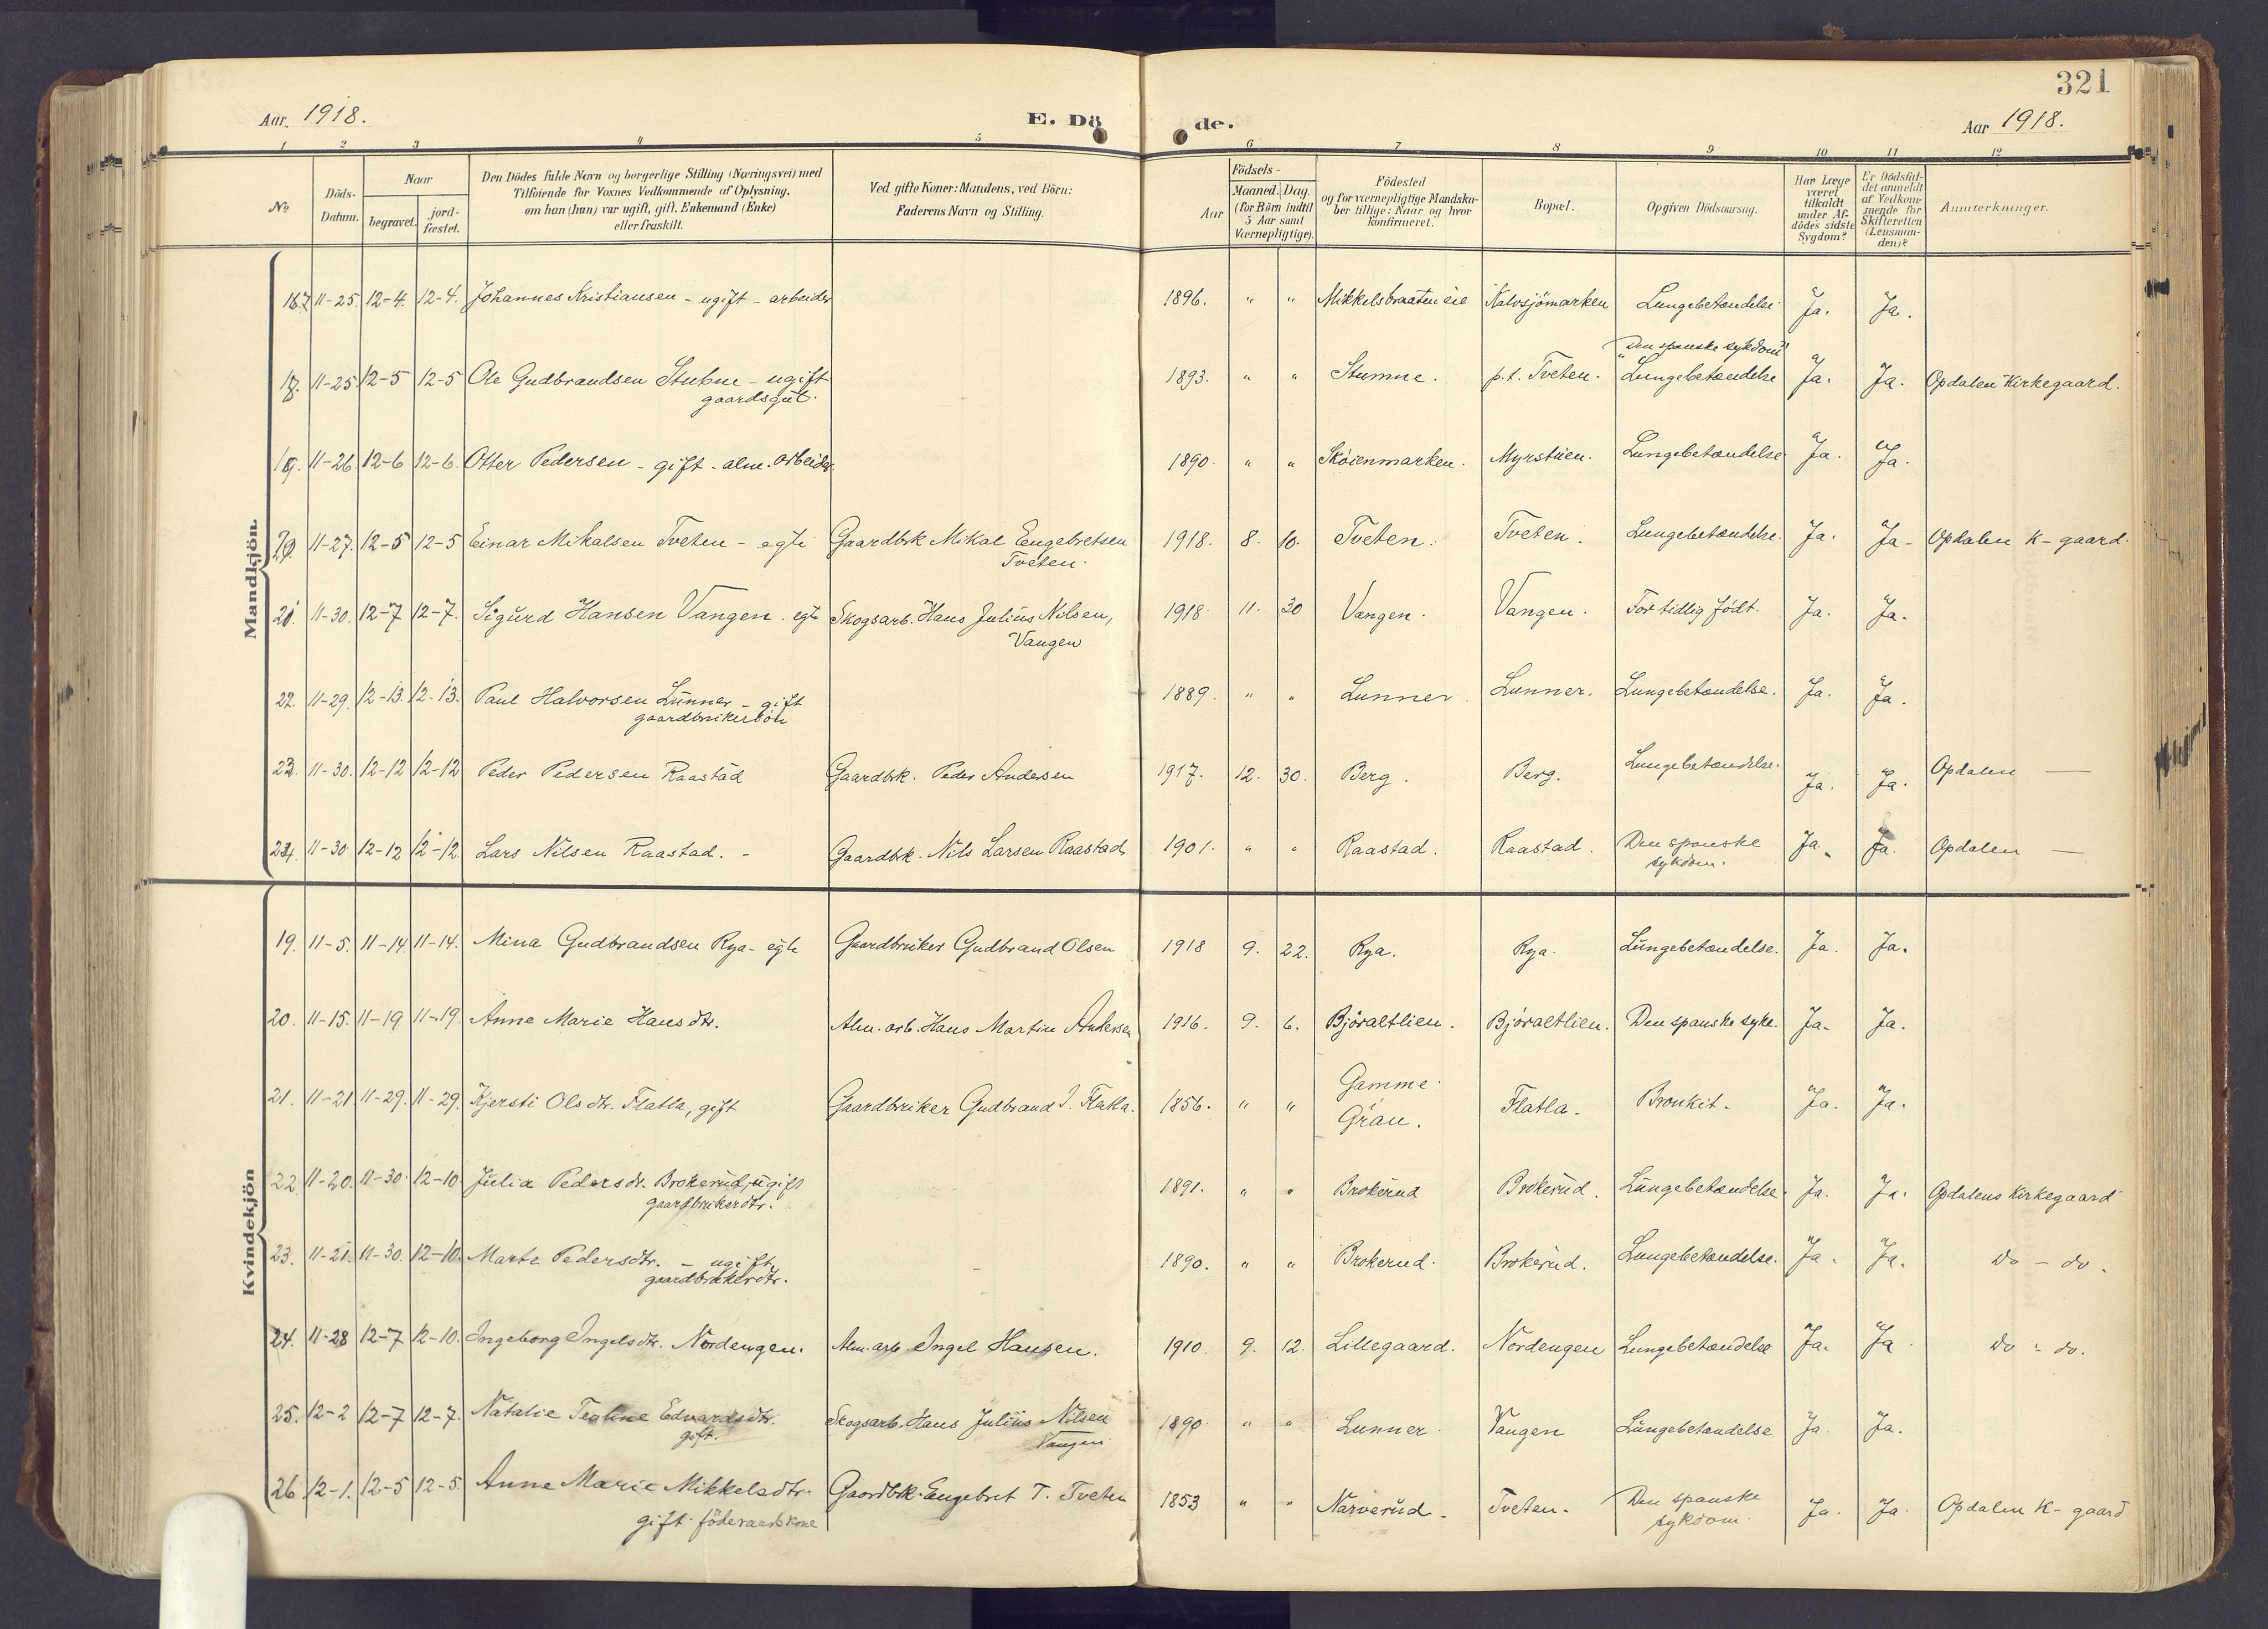 321
Aar 1918. E. Dö de. Aar 1918.
1 2 3 4 5 6 7 8 9 10 11 12
No
Döds-Datum.
Naar
begravet. jordfæstet.
Den Dödes fulde Navn og borgerlige Stilling (Næringsvei) med
Tilföiende for Voxnes Vedkommende af Oplysning,
om han (hun) var ugift, gift, Enkemand (Enke)
eller fraskilt.
Ved gifte Koner: Mandens, ved Börn:
Faderens Navn og Stilling.
Födsels-
Aar Maaned. Dag.
(for Börn indtil
5 Aar samt
Værnepligtige).
Födested
og for værnepligtige Mandskaber tillige: Naar og hvor
konfirmeret.
Bopæl.
Opgiven Dödsaarsag.
Har Læge
været
tilkaldt
under Afdödes sidste
Sygdom?
Er Dödsfaldet anmeldt
af Vedkommende for
Skifteretten
(Lensmanden)?
Anmærkninger.
Mandkjön.
187 11-25. 12-4. 12-4. Johannes Kristiansen - ugift - arbeider 1896. " " Mikkelsbraaten eie Kalvsjömarken Lungebetændelse. Ja. Ja.
18. 11-25 12-5 12-5 Ole Gudbrandsen Stubne - ugift 1893. " " Stumne. p.t. Tveten. Den spanske sykdom
gaardsgut. Lungebetændelse Ja. Ja. Opdalen Kirkegaard.
19. 11-26 12-6 12-6. Otter Pedersen - gift - alm. arbeider 1890. " " Skøienmarken. Myrstuen. Lungebetændelse Ja. Ja.
20. 11-27. 12-5 12-5 Einar Mikalsen Tveten - egte Gaardbrk Mikal Engebretsen 1918. 8. 10. Tveten. Tveten. Lungebetændelse. Ja. Ja - Opdalen K-gaard.
Tveten.
21. 11-30. 12-7 12-7. Sigurd Hansen Vangen. egte Skogsarb. Hans Julius Nilsen, 1918 11. 30 Vangen. Vangen. For tidlig født. Ja. Ja.
Vangen
22. 11-29. 12-13. 12-13. Paul Halvorsen Lunner - gift 1889. " " Lunner. Lunner. Lungebetændelse. Ja. Ja.
gaardbrukersøn
23. 11-30. 12-12 12-12 Peder Pedersen Raastad Gaardbrk. Peder Andersen 1917. 12. 30. Berg. Berg. Lungebetændelse. Ja. Ja. Opdalen —
24. 11-30 12-12 12-12. Lars Nilsen Raastad. - Gaardbrk. Nils Larsen Raastad 1901. " " Raastad. Raastad. Den spanske Ja. Ja. Opdalen —
sykdom.
Kvindekjön
19. 11-5. 11-14. 11-14. Mina Gudbrandsen Rya - egte Gaardbruker Gudbrand Olsen 1918 9. 22. Rya. Rya. Lungebetændelse. Ja. Ja.
20. 11-15. 11-19 11-19. Anne Marie Hansdtr. Alm. arb. Hans Martin Andersen 1916. 9. 6. Björaltlien. Björaltlien. Den spanske syke. Ja. Ja.
21. 11-21 11-29. 11-29. Kjersti Olsdtr. Flatla, gift Gaardbruker Gudbrand I. Flatla. 1856. " " Gamme Flatla. Bronkit. Ja. Ja.
Gran.
22. 11-20. 11-30. 12-10 Julia Pedersdtr. Brokerud, ugift 1891. " " Brokerud Brokerud. Lungebetændelse. Ja. Ja. Opdalens Kirkegaard
gaardbrukerdtr.
23. 11-21. 11-30. 12-10. Marte Pedersdtr. - ugift 1890. " " Brokerud. Brokerud. Lungebetændelse. Ja. Ja. do - do.
gaardbrukerdtr.
24. 11-28 12-7 12-10. Ingeborg Ingelsdtr. Nordengen. Alm. arb Ingel Hansen. 1910. 9. 12. Lillegaard. Nordengen Lungebetændelse Ja. Ja do - do.
25. 12-2 12-7 12-7. Natalie Teoline Edvardsdtr. Skogsarb. Hans Julius Nilsen 1890 " " Lunner Vangen Lungebetændelse Ja. Ja.
gift. Vangen
26 12-1. 12-5 12-5. Anne Marie Mikkelsdtr. Gaardbk. Engebret T. Tveten 1853 " " Narverud. Tveten. Den spanske Ja. Ja. Opdalen K-gaard
gift. föderaadskone sykdom.